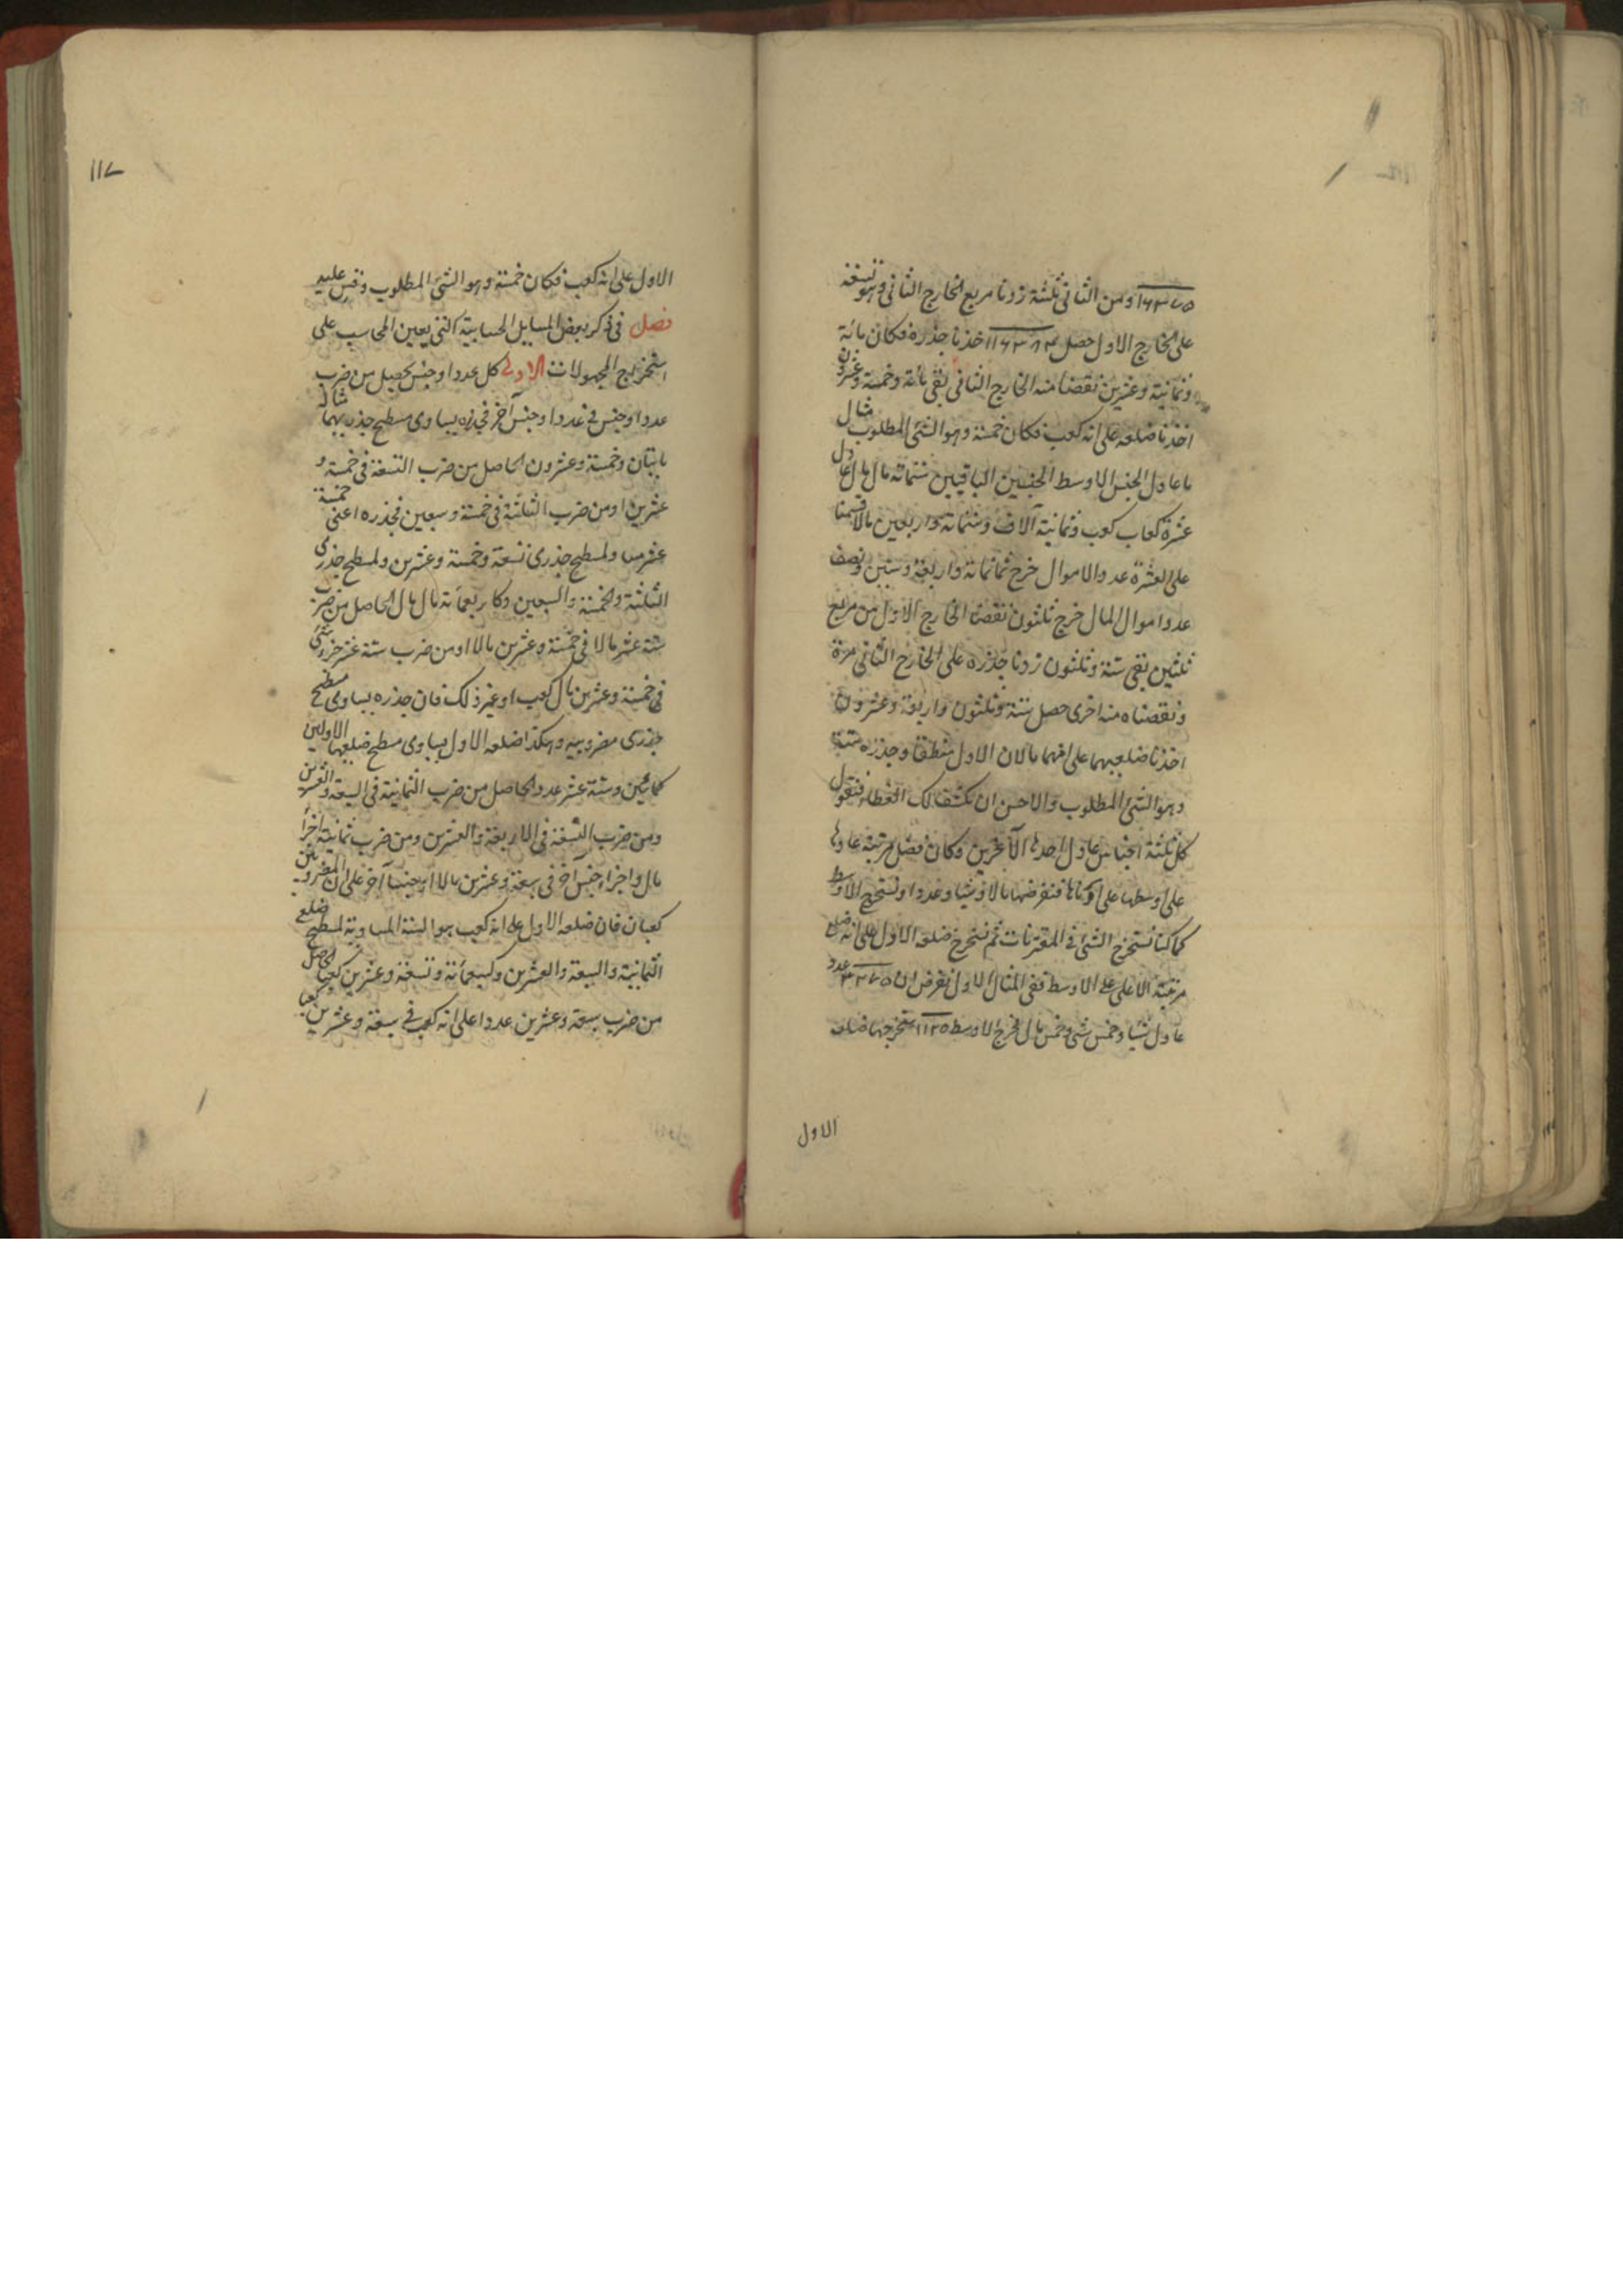 ١٦٣٧٥ ومن الثانى ثلثة زدنا مربع الخارج الثانى وهو تسعة
على الخارج الاول حصل ١٦٣٨٤ اخذنا جذره فكان مائة
وثمانية وعشرين نقصنا منه الخارج الثانى بقى مائة وخمسة وعشرون
اخذنا ضلعه على انه كعب فكان خمسة وهو الشئ المطلوب مثال
ما عادل الجنس الاوسط الجنسين الباقيين ستمائة مال مال عادل
عشرة كعاب كعب وثمانية آلاف وستمائة واربعين مالا قسمنا
على العشرة عدد الاموال خرج ثمانمائة واربعة وستين ونصف
عدد اموال المال خرج ثلثون نقصنا الخارج الاول من مربع
ثلثين بقى ستة وثلثون زدنا جذره على الخارج الثانى مرة
ونقصناه منه اخرى حصل ستة وثلثون واربعة وعشرون
اخذنا ضلعيهما على انهما مالان الاول منطقا وجذره ستة
وهو الشئ المطلوب والاحسن ان نكشف لك الغطاء فنقول
كل ثلثة اجناس عادل احدها الآخرين وكان فضل مرتبة
على اوسطها على فنفرضها مالا وشيا وعددا ونستخرج الاوسط
كما كنا نستخرج الشئ فى المقترنات ثم نستخرج ضلعه الاول على انه ضلع
مرتبة الاعلى على الاوسط ففى المثال الاول نفرض ان عدد
عادل شيا وخمس شئ وخمس مال فخرج الاوسط ١١٢٥ نستخرجها ضلعه
الاول
١١٧
الاول على انه كعب فكان خمسة وهو الشئ المطلوب وقس عليه
فصل فى ذكر بعض المسايل الحسابية التى يعين المحاسب على
استخراج المجهولات الاولى كل عدد او جنس يحصل من ضرب
عدد او جنس فى عدد او جنس آخر فجذره يساوى مسطح جذريهما مثاله
مايتان وخمسة وعشرون الحاصل من ضرب التسعة فى خمسة و
عشرين او من ضرب الثلثة فى خمسة وسبعين فجذره اعنى خمسة
عشر مساو لمسطح جذرى تسعة وخمسة وعشرين ولمسطح جذرى
الثلثة والخمسة والسبعين وكاربعمائة مال مال الحاصل من ضرب
ستة عشر مالا فى خمسة وعشرين مالا او من ضرب ستة عشر جزو شئ
فى خمسة وعشرين مال كعب او غير ذلك فان جذره يساوى مسطح
جذرى مضروبيه وهكذا ضلعه الاول يساوى مسطح ضلعيهما الاولين
كمائتين وستة عشر عددا الحاصل من ضرب الثمانية فى السبعة والعشرين
ومن ضرب التسعة فى الاربعة والعشرين ومن ضرب ثمانية اجزأ
مال واجزاء جنس آخر فى سبعة وعشرين مالا او جنسا آخر على ان المضروبين
كعبان فان ضلعه الاول على انه كعب هو الستة المساوية لمسطح ضلع
الثمانية والسبعة والعشرين وكسبعمائة وتسعة وعشرين كعبا الحاصل
من ضرب سبعة وعشرين عددا على انه كعب فى سبعة وعشرين كعبا